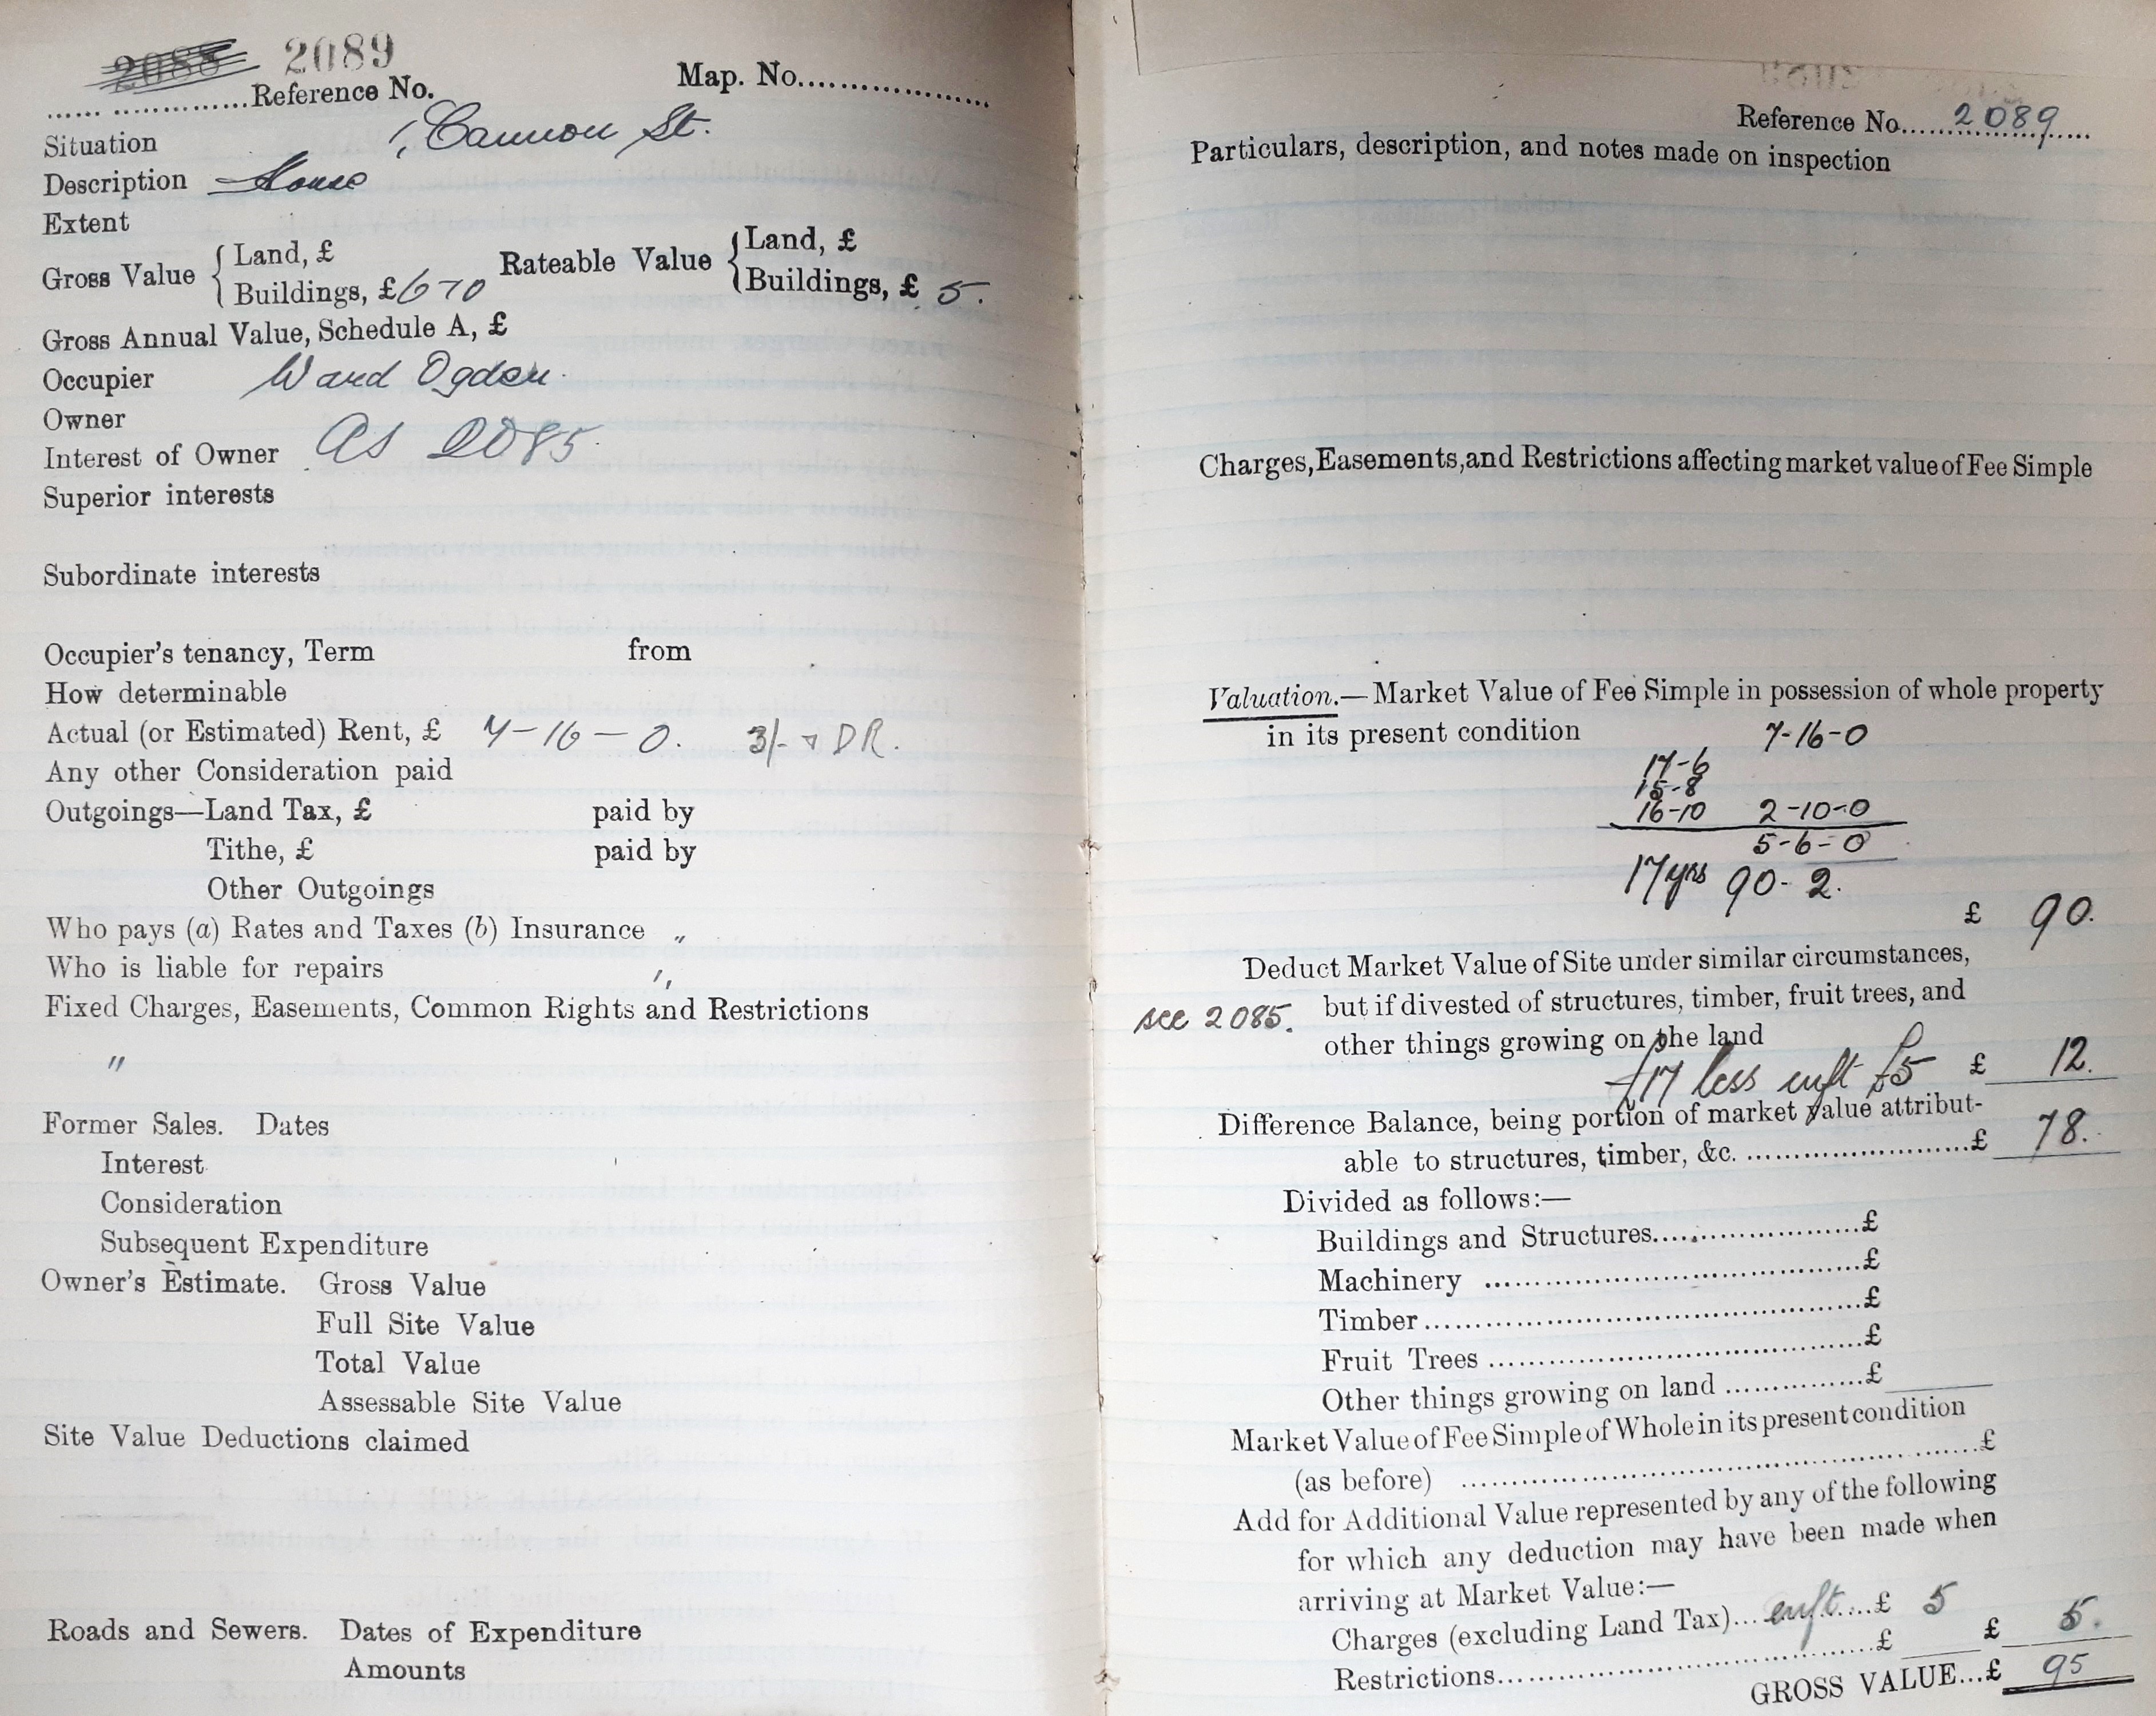 2088 2089
Reference No. Map. No.
Situation 1, Cannon St.
Description House
Extent
Gross Value { Land, £ Rateable Value { Land, £
Buildings, £ 6-10 Buildings, £ 5.
Gross Annual Value, Schedule A, £
Occupier Ward Ogden.
Owner
Interest of Owner As 2085
Superior interests
Subordinate interests
Occupier's tenancy, Term from
How determinable
Actual (or Estimated) Rent, £ 7-16-0. 3/- DR.
Any other Consideration paid
Outgoings—Land Tax, £ paid by
Tithe, £ paid by
Other Outgoings
Who pays (a) Rates and Taxes (b) Insurance "
Who is liable for repairs "
Fixed Charges, Easements, Common Rights and Restrictions
"
Former Sales. Dates
Interest
Consideration
Subsequent Expenditure
Owner's Estimate. Gross Value
Full Site Value
Total Value
Assessable Site Value
Site Value Deductions claimed
Roads and Sewers. Dates of Expenditure
Amounts
Reference No. 2089
Particulars, description, and notes made on inspection
Charges, Easements, and Restrictions affecting market value of Fee Simple
Valuation.—Market Value of Fee Simple in possession of whole property
in its present condition 7-16-0
17-6
15-8
16-10 2-10-0
5-6-0
17 yrs 90-2.
£ 90.
Deduct Market Value of Site under similar circumstances,
see 2085. but if divested of structures, timber, fruit trees, and
other things growing on the land
£17 less enft £5 £ 12.
Difference Balance, being portion of market value attribut-
able to structures, timber, &c. £ 78.
Divided as follows:—
Buildings and Structures £
Machinery £
Timber £
Fruit Trees £
Other things growing on land £
Market Value of Fee Simple of Whole in its present condition
(as before) £
Add for Additional Value represented by any of the following
for which any deduction may have been made when
arriving at Market Value:—
Charges (excluding Land Tax) enft £ 5
Restrictions £ £ 5.
GROSS VALUE...£ 95